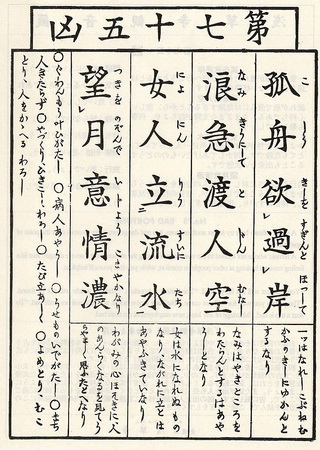 第七十五凶
孤舟欲過岸
こ しう きしを すぎんと ほつして
一ツはなれしこぶねむ
かふのきしにゆかんと
するなり
浪急渡人空
なみ きうにして と じん むなし
なみはやきところを
わたらんとするはあや
うしとなり
女人立流水
によ にん りう すいに たち
女は水になれぬもの
なり、ながれに立とは
あやふきていなり
望月意情濃
つきを のぞんで い じよう こまやかなり
わがみの心ほそきに人
のあんらくなるを見てう
らやましく思ふたとへなり
〇ぐわんもう叶ひがたし 〇病人あやうし 〇うせものいでがたし 〇まち
人きたらず 〇やづくりひきこし、わろし 〇たび立あし 〇よめとり、むこ
とり、人をかゝへるわろし